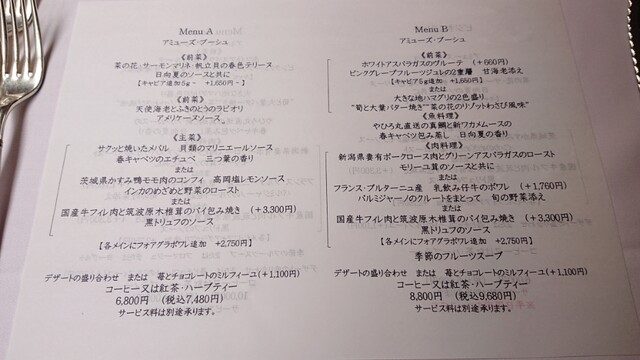 Menu A
アミューズ・ブーシュ
《前菜》
菜の花・サーモンマリネ・帆立貝の春色テリーヌ
日向夏のソースと共に
【キャビア追加5g ~ +1,650円~】
《前菜》
天使海老とふきのとうのラビオリ
アメリケーヌソース
《主菜》
サクッと焼いたメバル 貝類のマリニエールソース
春キャベツのエチュベ 三つ葉の香り
または
茨城県かすみ鴨モモ肉のコンフィ 高岡塩レモンソース
インカのめざめと野菜のロースト
または
国産牛フィレ肉と筑波原木椎茸のパイ包み焼き (+3,300円)
黒トリュフのソース
【各メインにフォアグラポワレ追加 +2,750円】
デザートの盛り合わせ または 苺とチョコレートのミルフィーユ(+1,100円)
コーヒー又は紅茶・ハーブティー
6,800円 (税込7,480円)
サービス料は別途承ります。
Menu B
アミューズ・ブーシュ
《前菜》
ホワイトアスパラガスのヴルーテ (+660円)
ピンクグレープフルーツジュレの2重層 甘海老添え
【キャビア5g追加~ +1,650円】
または
大きな地ハマグリの2色盛り
"筍と大葉バター焼き""菜の花のリゾットわさび風味"
《魚料理》
やひろ丸直送の真鯛と新ワカメムースの
春キャベツ包み蒸し 日向夏の香り
《肉料理》
新潟県妻有ポークロース肉とグリーンアスパラガスのロースト
モリーユ茸のソースと共に
または
フランス・ブルターニュ産 乳飲み仔牛のポワレ (+1,760円)
パルミジャーノのクルートをまとって 旬の野菜添え
または
国産牛フィレ肉と筑波原木椎茸のパイ包み焼き (+3,300円)
黒トリュフのソース
【各メインにフォアグラポワレ追加 +2,750円】
季節のフルーツスープ
デザートの盛り合わせ または 苺とチョコレートのミルフィーユ(+1,100円)
コーヒー又は紅茶・ハーブティー
8,800円 (税込9,680円)
サービス料は別途承ります。